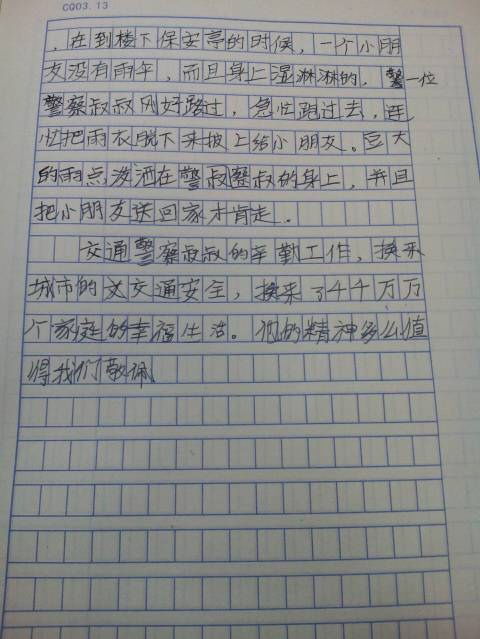 CQ03.13
，在到楼下保安亭的时候，一个小朋
友没有雨伞，而且身上湿淋淋的，一位
警察叔叔刚好路过，急忙跑过去，连
忙把雨衣脱下来披上给小朋友。豆大
的雨点泼洒在警叔察叔的身上，并且
把小朋友送回家才肯走．
交通警察叔叔的辛勤工作，换来
城市的交通安全，换来了千千万万
个家庭的幸福生活。他的精神多么值
得我们敬佩．